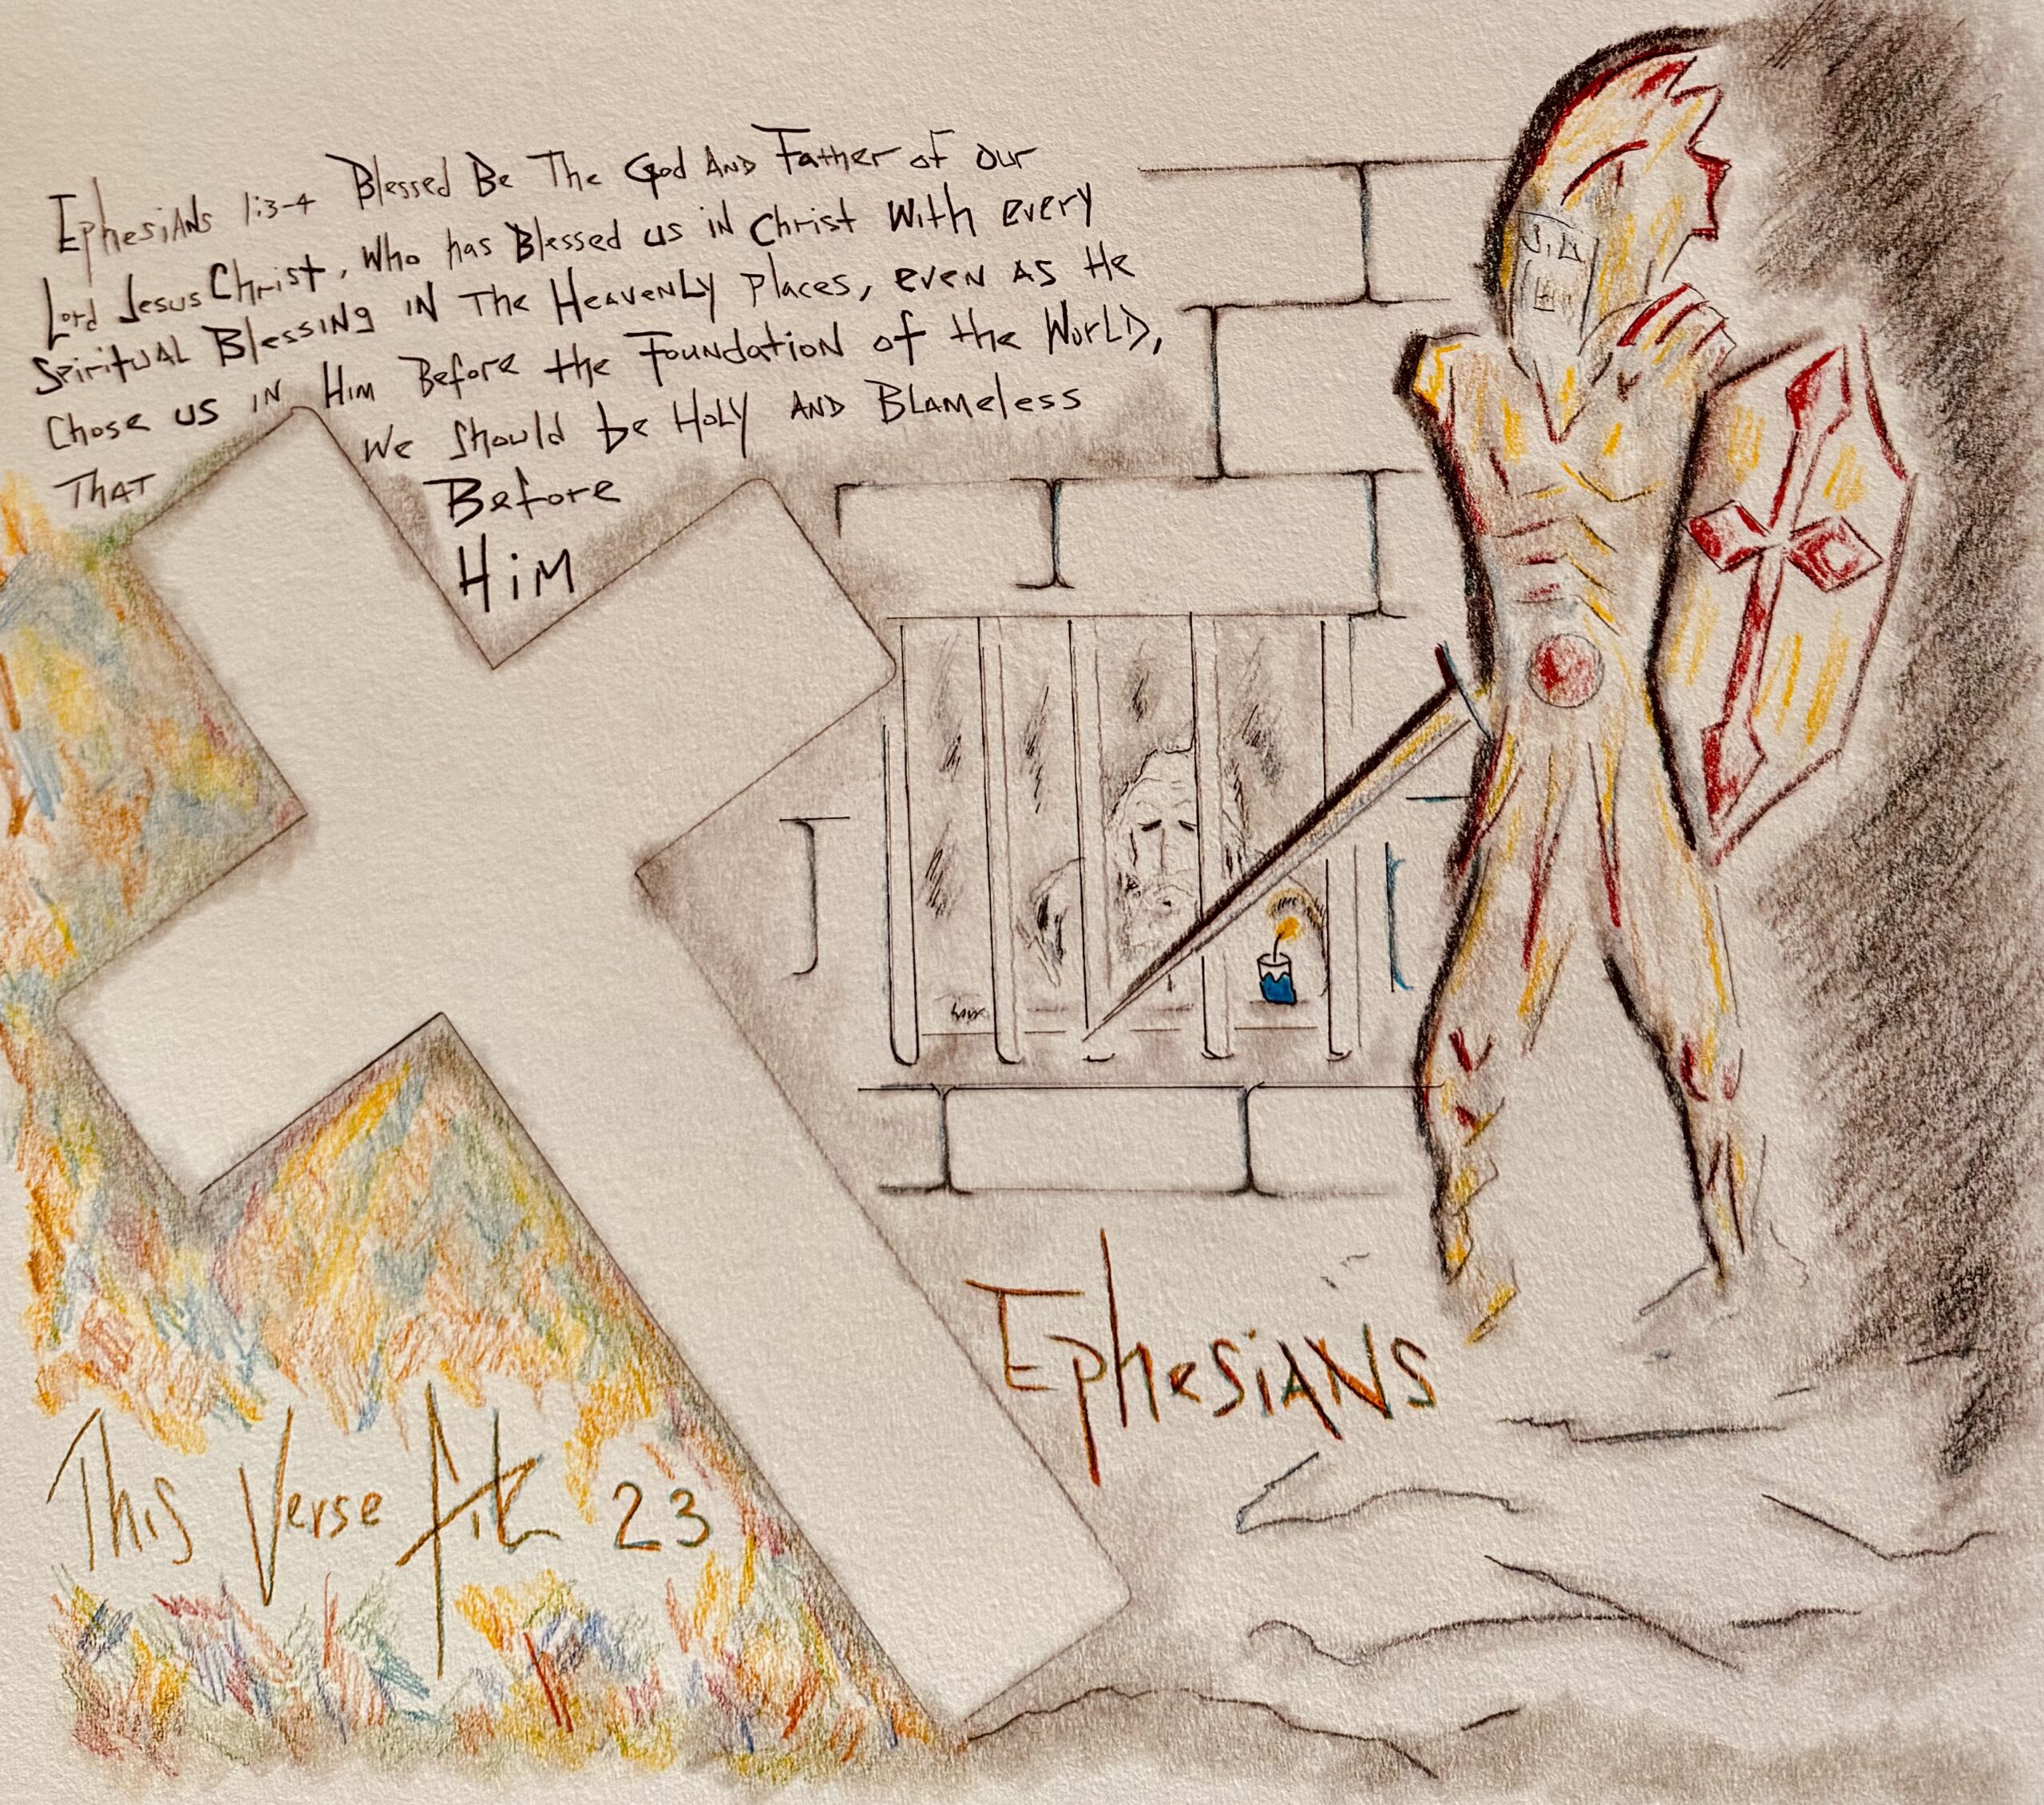 Ephesians 1:3-4 Blessed Be The God And Father of our
Lord Jesus Christ, Who has Blessed us in Christ With every
Spiritual Blessing in The Heavenly Places, even as He
Chose us in Him Before the Foundation of the World,
That We Should be Holy And Blameless
Before
Him
Ephesians
This Verse 23